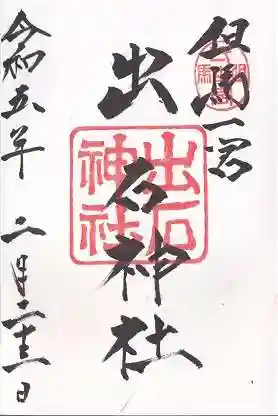 但馬一宮
出石神社
出石神社
令和五年 二月二十三日